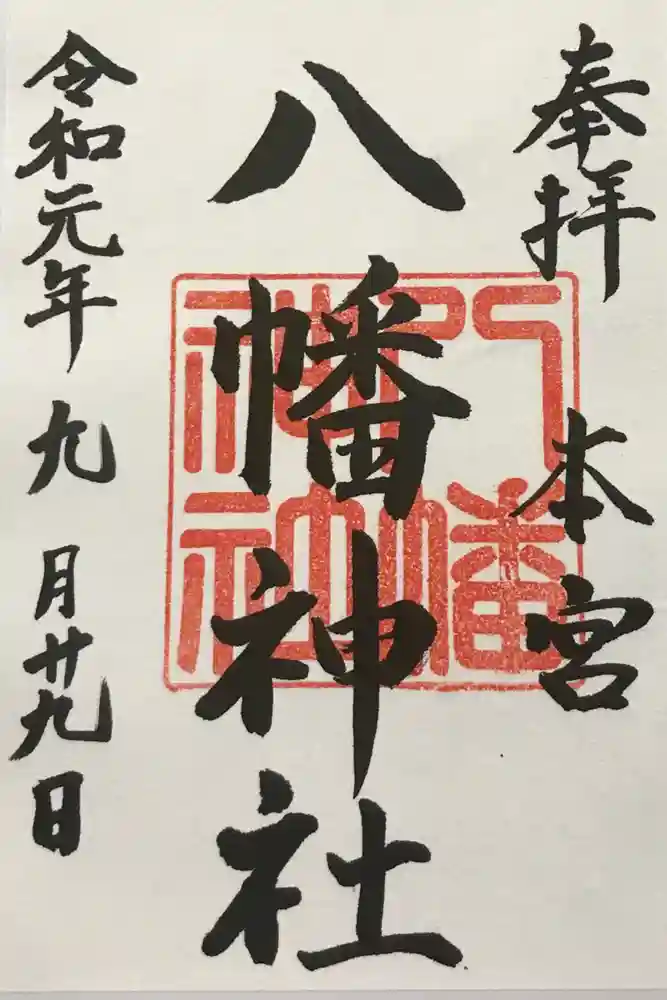 奉拝
本宮
八幡神社
令和元年九月廿九日